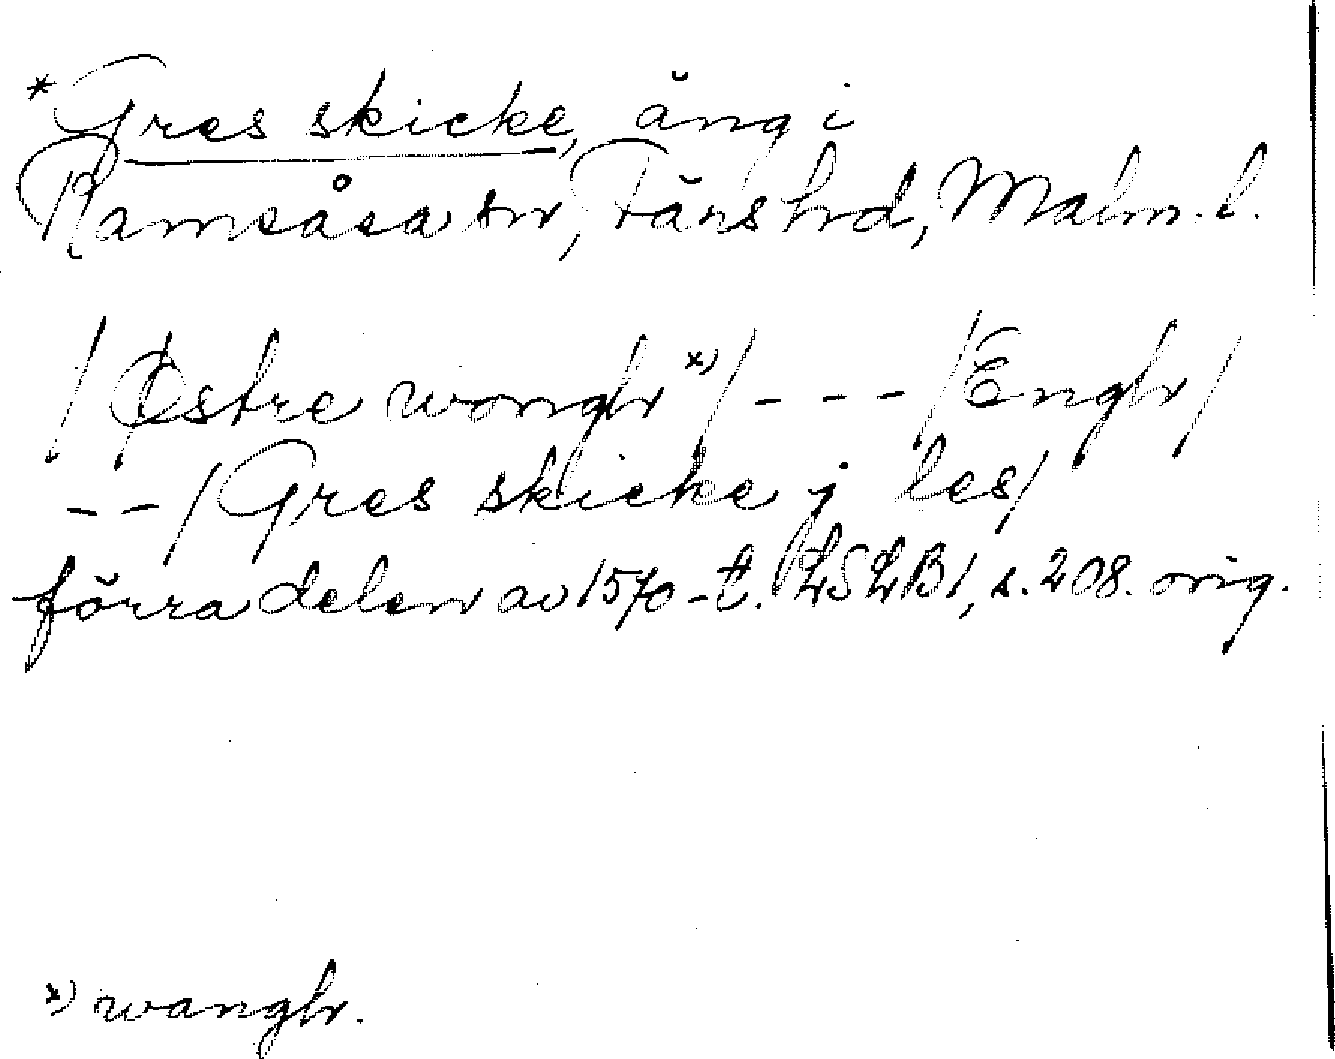 *Gres skicke, äng i
Ramsåsa sn, Färs hd, Malm. l.
/Østre wongh x)/ - - - /Engh/
- - /Gres skicke j les/
förra delen av 1570-t. LSLB1, s. 208. orig.
x) wangh.